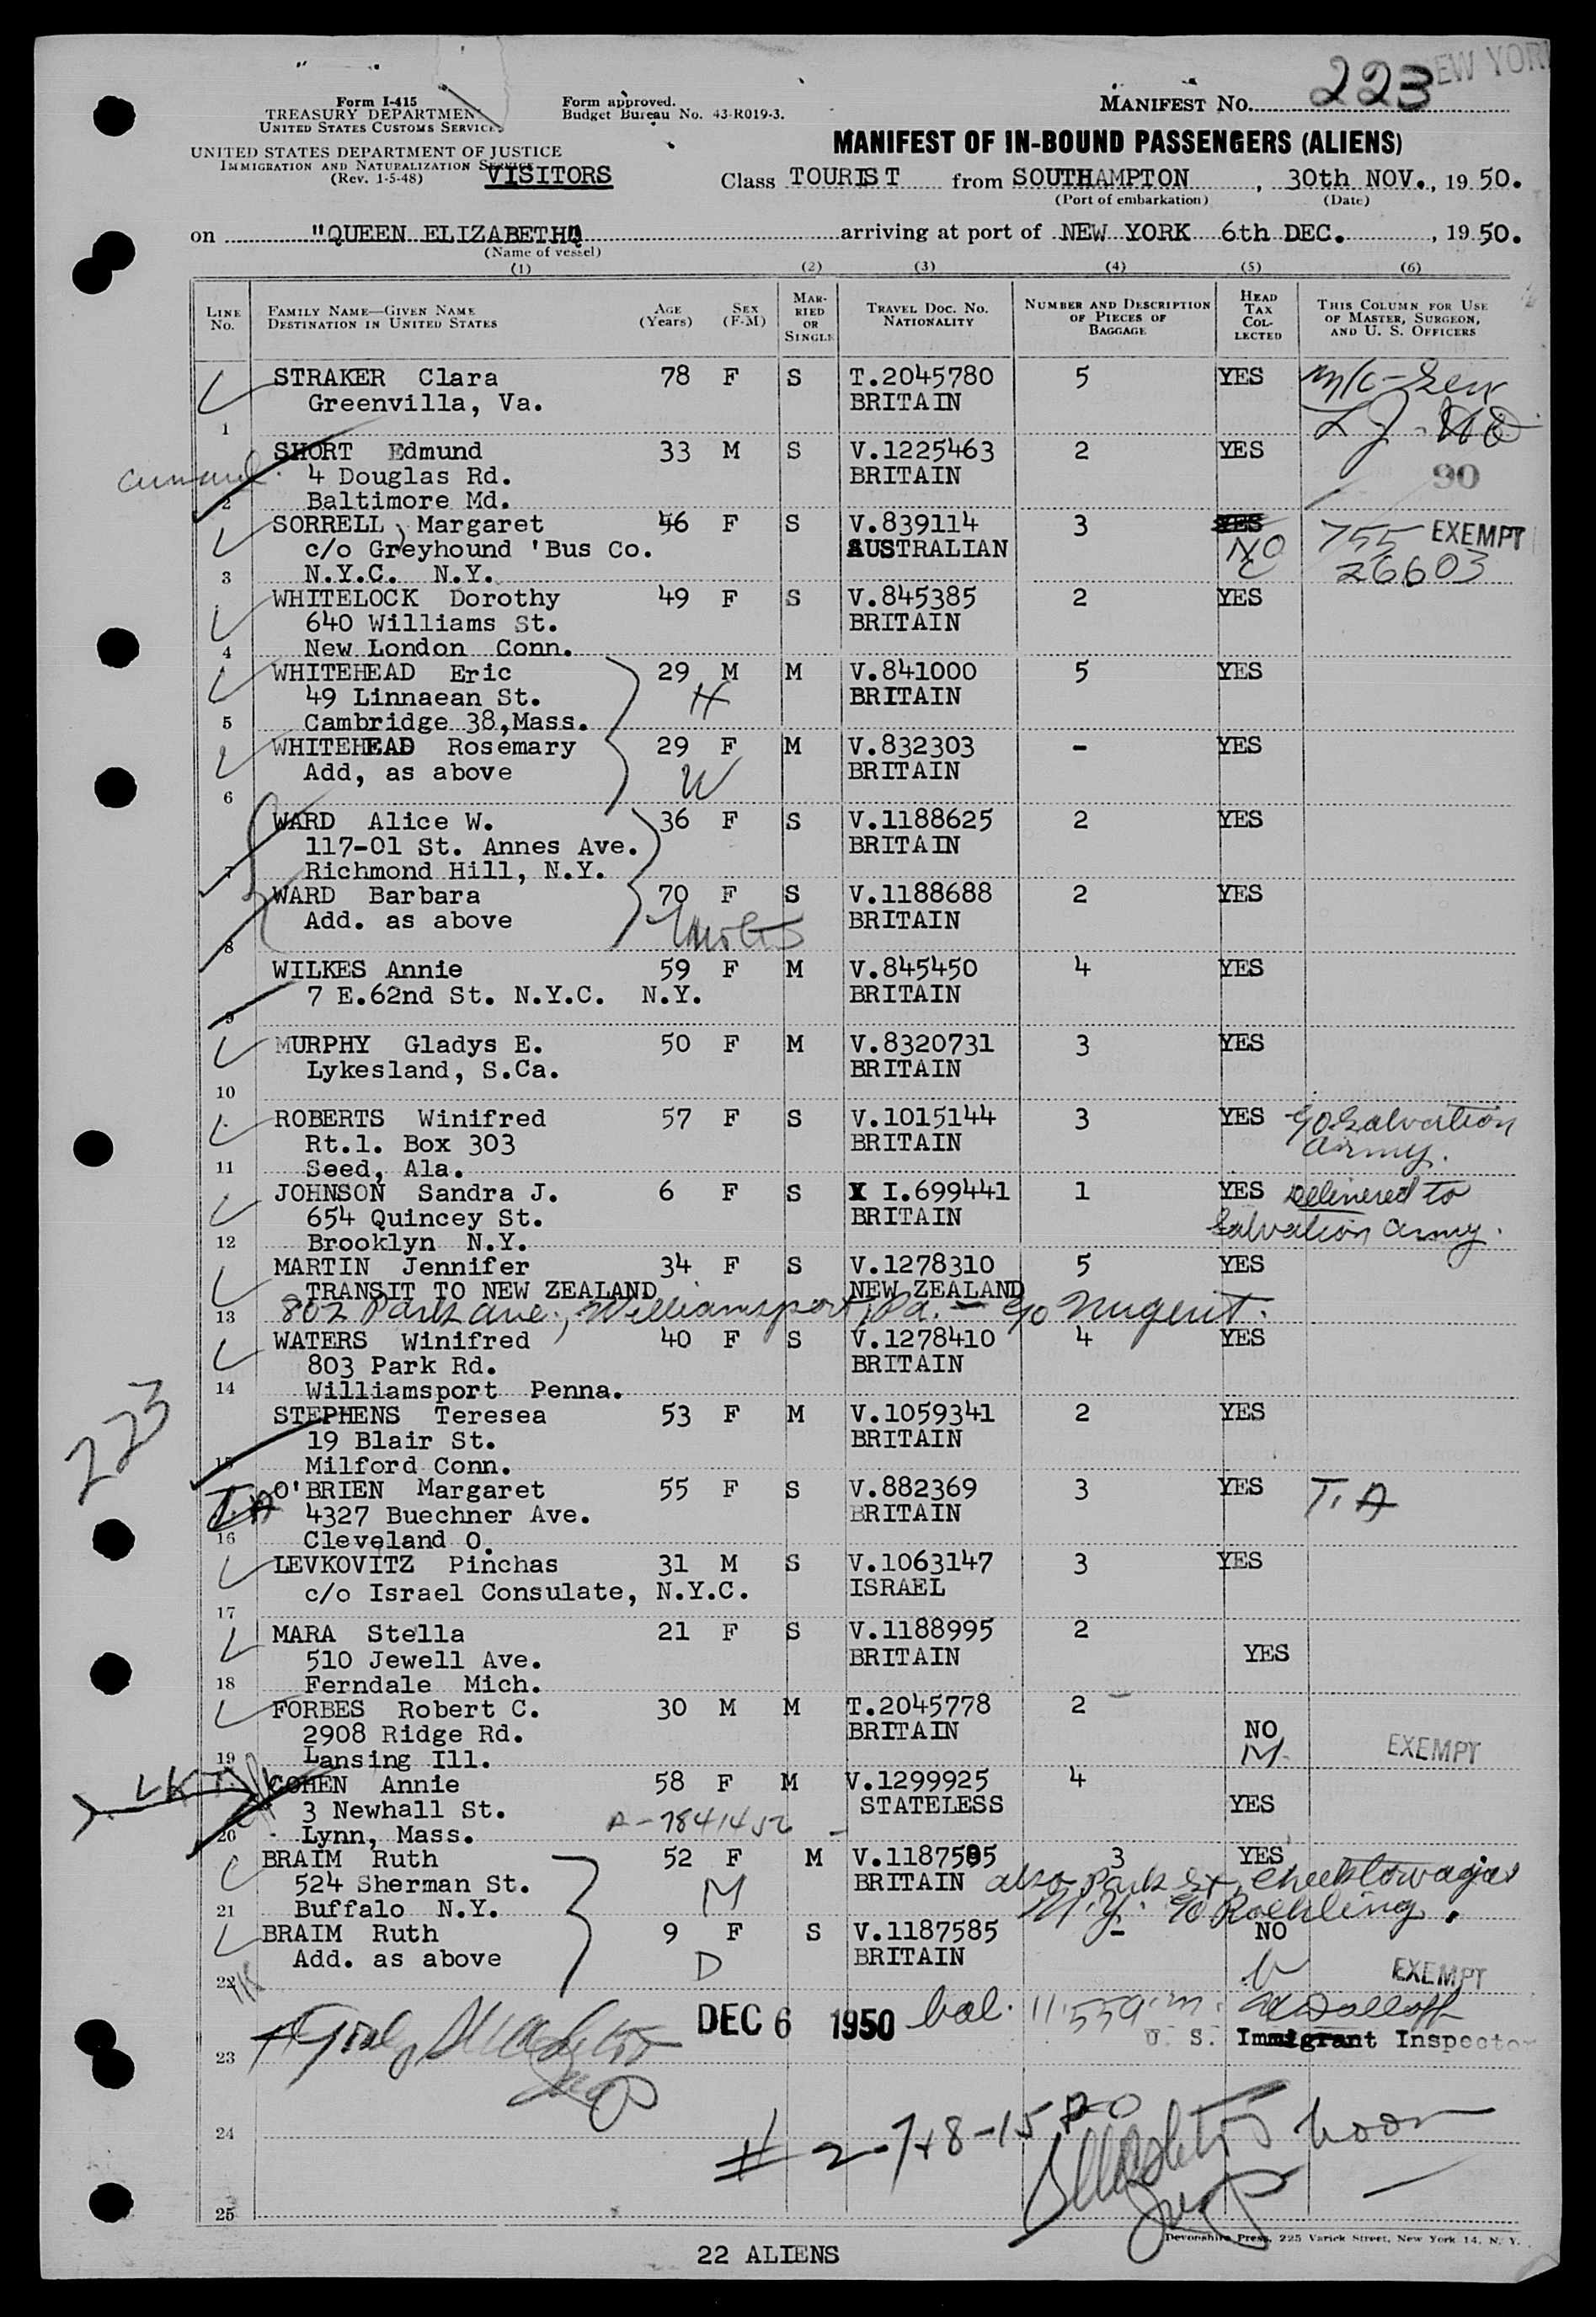 NEW YORK
Form I-415
TREASURY DEPARTMENT
UNITED STATES CUSTOMS SERVICE
Form approved.
Budget Bureau No. 43-R019-3.
MANIFEST NO. 223
UNITED STATES DEPARTMENT OF JUSTICE
IMMIGRATION AND NATURALIZATION SERVICE
(Rev. 1-5-48)
VISITORS
MANIFEST OF IN-BOUND PASSENGERS (ALIENS)
Class TOURIST from SOUTHAMPTON, 30th NOV., 19 50.
(Port of embarkation) (Date)
on "QUEEN ELIZABETH" arriving at port of NEW YORK 6th DEC., 19 50.
(Name of vessel)
(1) (2) (3) (4) (5) (6)
LINE NO. FAMILY NAME—GIVEN NAME DESTINATION IN UNITED STATES AGE (Years) SEX (F-M) MARRIED OR SINGLE TRAVEL DOC. NO. NATIONALITY NUMBER AND DESCRIPTION OF PIECES OF BAGGAGE HEAD TAX COLLECTED THIS COLUMN FOR USE OF MASTER, SURGEON, AND U. S. OFFICERS
STRAKER Clara 78 F S T.2045780 5 YES
Greenvilla, Va. BRITAIN
1
SHORT Edmund 33 M S V.1225463 2 YES
Cunard 4 Douglas Rd. BRITAIN 90
2 Baltimore Md.
SORRELL Margaret 46 F S V.839114 3 YES 755 EXEMPT
c/o Greyhound 'Bus Co. AUSTRALIAN NO 26603
3 N.Y.C. N.Y.
WHITELOCK Dorothy 49 F S V.845385 2 YES
640 Williams St. BRITAIN
4 New London Conn.
WHITEHEAD Eric 29 M M V.841000 5 YES
49 Linnaean St. H BRITAIN
5 Cambridge 38,Mass.
WHITEHEAD Rosemary 29 F M V.832303 - YES
Add, as above W BRITAIN
6
WARD Alice W. 36 F S V.1188625 2 YES
117-01 St. Annes Ave. BRITAIN
7 Richmond Hill, N.Y.
WARD Barbara 70 F S V.1188688 2 YES
Add. as above BRITAIN
8
WILKES Annie 59 F M V.845450 4 YES
7 E.62nd St. N.Y.C. N.Y. BRITAIN
9
MURPHY Gladys E. 50 F M V.8320731 3 YES
Lykesland, S.Ca. BRITAIN
10
ROBERTS Winifred 57 F S V.1015144 3 YES c/o Salvation
Rt.1. Box 303 BRITAIN Army.
11 Seed, Ala.
JOHNSON Sandra J. 6 F S X I.699441 1 YES Delivered to
654 Quincey St. BRITAIN Salvation Army.
12 Brooklyn N.Y.
MARTIN Jennifer 34 F S V.1278310 5 YES
TRANSIT TO NEW ZEALAND NEW ZEALAND
13 802 Park Ave., Williamsport, Pa. - c/o Nugent.
WATERS Winifred 40 F S V.1278410 4 YES
803 Park Rd. BRITAIN
14 Williamsport Penna.
223
STEPHENS Teresea 53 F M V.1059341 2 YES
19 Blair St. BRITAIN
15 Milford Conn.
T.A O'BRIEN Margaret 55 F S V.882369 3 YES T.A
4327 Buechner Ave. BRITAIN
16 Cleveland O.
LEVKOVITZ Pinchas 31 M S V.1063147 3 YES
c/o Israel Consulate, N.Y.C. ISRAEL
17
MARA Stella 21 F S V.1188995 2
510 Jewell Ave. BRITAIN YES
18 Ferndale Mich.
FORBES Robert C. 30 M M T.2045778 2
2908 Ridge Rd. BRITAIN NO
19 Lansing Ill. M EXEMPT
COHEN Annie 58 F M V.1299925 4
3 Newhall St. A-7841452 STATELESS YES
20 Lynn, Mass.
BRAIM Ruth 52 F M V.1187585 3 YES
524 Sherman St. M BRITAIN also Park St, Cheektowaga
21 Buffalo N.Y. N.Y. c/o Roehling.
BRAIM Ruth 9 F S V.1187585 - NO
Add. as above D BRITAIN
22 EXEMPT
DEC 6 1950 bal. 11:55 a.m.
U. S. Immigrant Inspector
23
# 2-7+8-15
24
noon
25
Devonshire Press, 225 Varick Street, New York 14, N. Y.
22 ALIENS